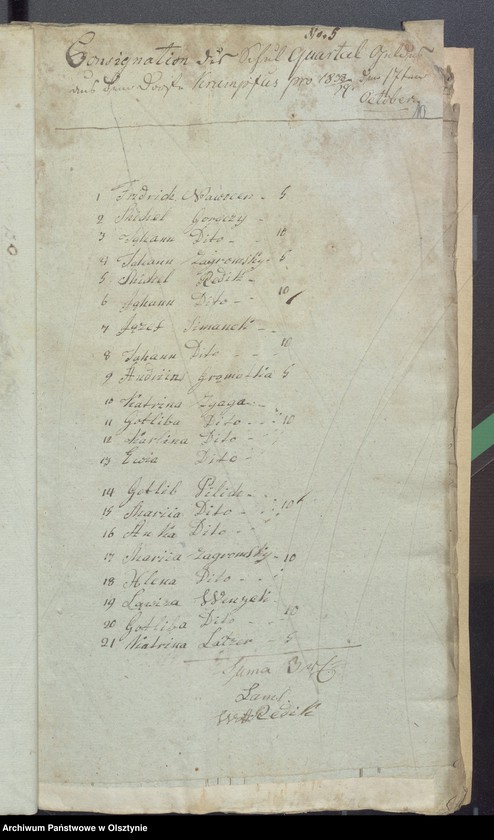 No. 5
Consignation der Schul Quartal Gelder
aus dem Dorfe pro 18 den 17ten
October
1 Fredrich Nawrcen - 5
2 Michel Gorgezy -
3 Johann Dito - 10
4 Johann Zagromsky - 5
5 Michel Redik -
6 Johann Dito - - 10
7 Jozef Simanek - -
8 Johann Dito - - - 10
9 Andriens Gromatka 5
10 Katrina Zgaga -
11 Gotliba Dito - 10
12 Karlina Dito -
13 Ewa Dito -
14 Gotlib Pilich -
15 Mariia Dito - 10
16 Anka Dito -
17 Mariia Zagromsky - 10
18 Hlena Dito - -
19 Lawiza Wenzek
20 Gotliba Dito - 10
21 Katrina Latzer - 5
Suma
W Redik
Archiwum Państwowe w Olsztynie